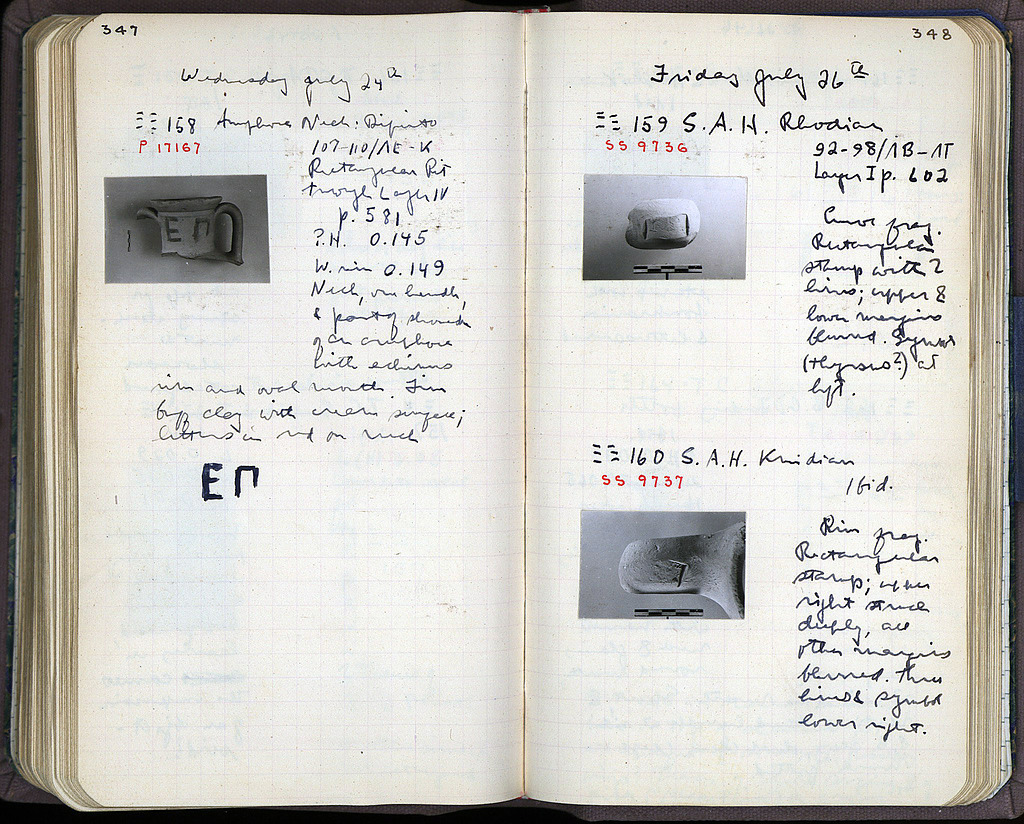 347
Wednesday July 24th
ΞΞ 158 Amphora Neck: Dipinto
P 17167
107-110/ΛΕ-Κ
Rectangular Pit
through Layer IV
p. 581
P.H. 0.145
W. rim 0.149
Neck, one handle,
& part of shoulder
of an amphora
with echinus
rim and oval mouth. Fine
buff clay with cream surface;
letters in red on neck
ΕΠ
ΕΠ
348
Friday July 26th
ΞΞ 159 S.A.H. Rhodian
SS 9736
92-98/ΛΒ-ΛΤ
Layer I p. 602
Curve frag.
Rectangular
stamp with 2
lines; upper &
lower margins
blurred. Symbol
(thyrsus?) at
left.
ΞΞ 160 S.A.H. Knidian
SS 9737
Ibid.
Rim frag.
Rectangular
stamp; upper
right struck
deeply, all
other margins
blurred. Three
lines & symbol
lower right.